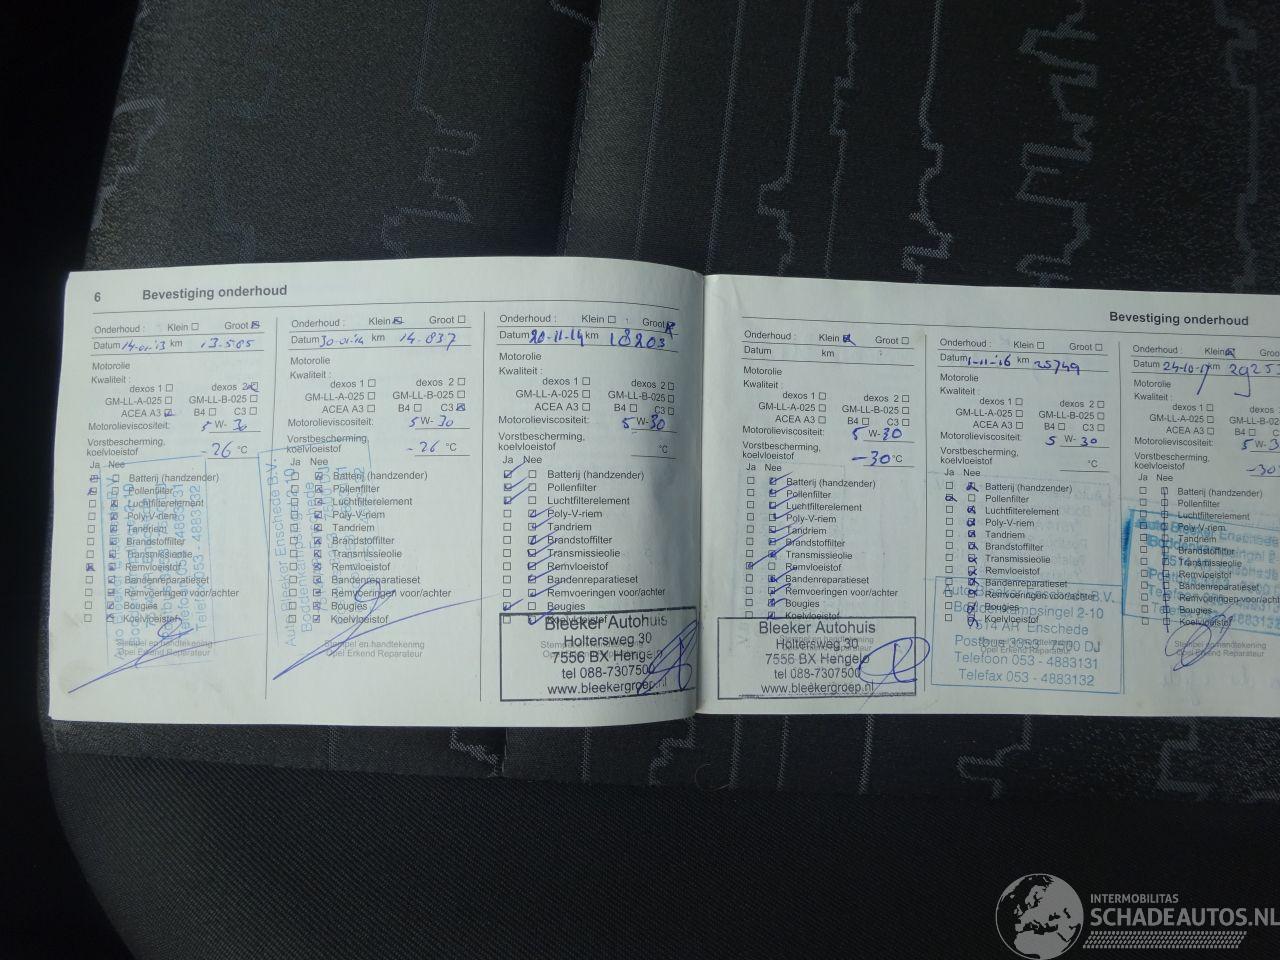 6 Bevestiging onderhoud
Onderhoud : Klein Groot
Datum 14-01-'13 km 13.585
Motorolie
Kwaliteit :
dexos 1 dexos 2
GM-LL-A-025 GM-LL-B-025
ACEA A3 B4 C3
Motorolieviscositeit: 5 W- 30
Vorstbescherming,
koelvloeistof -26 °C
Ja Nee
Batterij (handzender)
Pollenfilter
Luchtfilterelement
Poly-V-riem
Tandriem
Brandstoffilter
Transmissieolie
Remvloeistof
Bandenreparatieset
Remvoeringen voor/achter
Bougies
Koelvloeistof
Stempel en handtekening
Opel Erkend Reparateur
Telefoon 053 - 4883131
Telefax 053 - 4883132
Onderhoud : Klein Groot
Datum 30-01-14 km 14.837
Motorolie
Kwaliteit :
dexos 1 dexos 2
GM-LL-A-025 GM-LL-B-025
ACEA A3 B4 C3
Motorolieviscositeit: 5 W- 30
Vorstbescherming,
koelvloeistof -26 °C
Ja Nee
Batterij (handzender)
Pollenfilter
Luchtfilterelement
Poly-V-riem
Tandriem
Brandstoffilter
Transmissieolie
Remvloeistof
Bandenreparatieset
Remvoeringen voor/achter
Bougies
Koelvloeistof
Stempel en handtekening
Opel Erkend Reparateur
Onderhoud : Klein Groot
Datum 20-11-14 km 18203
Motorolie
Kwaliteit :
dexos 1 dexos 2
GM-LL-A-025 GM-LL-B-025
ACEA A3 B4 C3
Motorolieviscositeit: 5 W-30
Vorstbescherming,
koelvloeistof °C
Ja Nee
Batterij (handzender)
Pollenfilter
Luchtfilterelement
Poly-V-riem
Tandriem
Brandstoffilter
Transmissieolie
Remvloeistof
Bandenreparatieset
Remvoeringen voor/achter
Bougies
Koelvloeistof
Bleeker Autohuis
Holtersweg 30
7556 BX Hengelo
tel 088-7307500
www.bleekergroep.nl
Bevestiging onderhoud
Onderhoud : Klein Groot
Datum km
Motorolie
Kwaliteit :
dexos 1 dexos 2
GM-LL-A-025 GM-LL-B-025
ACEA A3 B4 C3
Motorolieviscositeit: 5 W-30
Vorstbescherming,
koelvloeistof -30 °C
Ja Nee
Batterij (handzender)
Pollenfilter
Luchtfilterelement
Poly-V-riem
Tandriem
Brandstoffilter
Transmissieolie
Remvloeistof
Bandenreparatieset
Remvoeringen voor/achter
Bougies
Koelvloeistof
Bleeker Autohuis
Holtersweg 30
7556 BX Hengelo
tel 088-7307500
www.bleekergroep.nl
Onderhoud : Klein Groot
Datum 1-11-'16 km 25749
Motorolie
Kwaliteit :
dexos 1 dexos 2
GM-LL-A-025 GM-LL-B-025
ACEA A3 B4 C3
Motorolieviscositeit: 5 W- 30
Vorstbescherming,
koelvloeistof °C
Ja Nee
Batterij (handzender)
Pollenfilter
Luchtfilterelement
Poly-V-riem
Tandriem
Brandstoffilter
Transmissieolie
Remvloeistof
Bandenreparatieset
Remvoeringen voor/achter
Bougies
Koelvloeistof
7514 AH Enschede
Postbus 7500 DJ
Telefoon 053 - 4883131
Telefax 053 - 4883132
Onderhoud : Klein Groot
Datum 24-10-17 km
Motorolie
Kwaliteit :
dexos 1
GM-LL-A-025
ACEA A3 B4
Motorolieviscositeit: 5
Vorstbescherming,
koelvloeistof -30
Ja Nee
Batterij (handzender)
Pollenfilter
Luchtfilterelement
Poly-V-riem
Tandriem
Brandstoffilter
Transmissieolie
Remvloeistof
Bandenreparatieset
Remvoeringen voor/achter
Bougies
Koelvloeistof
Stempel en handtekening
Opel Erkend Reparateur
INTERMOBILITAS
SCHADEAUTOS.NL